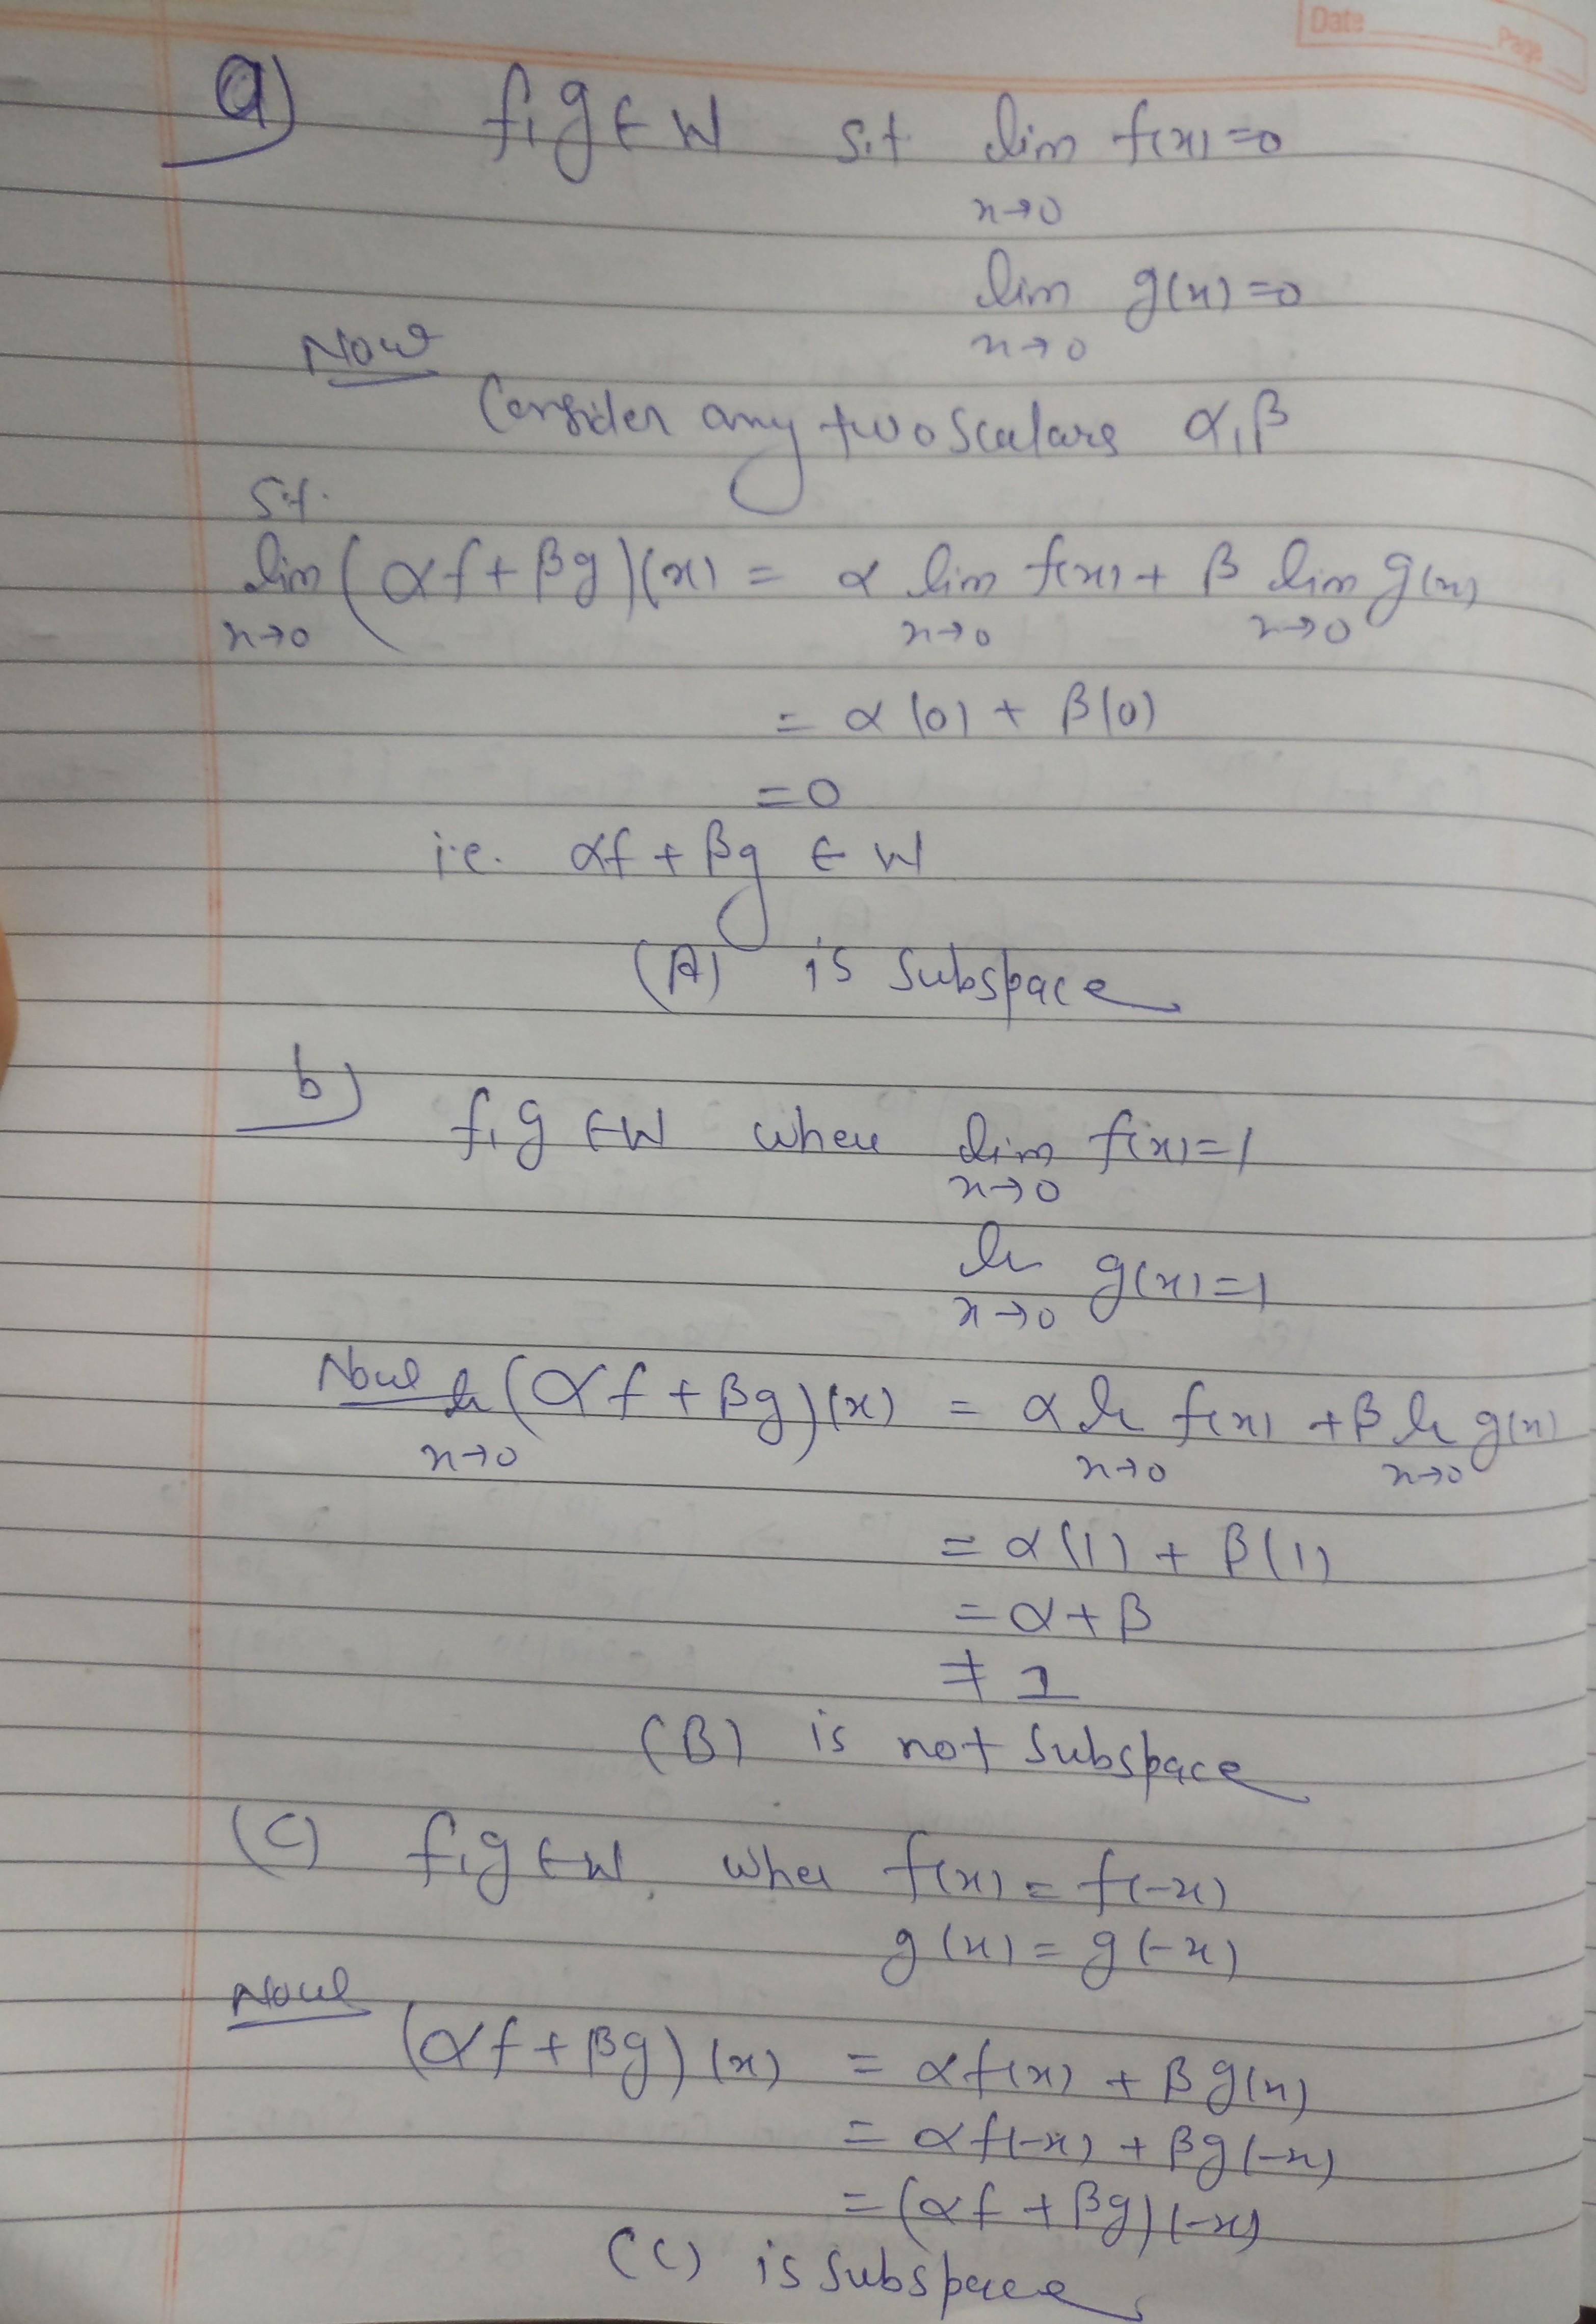 Date
Page
a) f, g ∈ W s.t lim f(x) = 0
x→0
lim g(x) = 0
x→0
Now
Consider any two scalars α, β
s.t.
lim (αf + βg)(x) = α lim f(x) + β lim g(x)
x→0 x→0 x→0
= α(0) + β(0)
= 0
i.e. αf + βg ∈ W
(A) is subspace
b) f, g ∈ W where lim f(x) = 1
x→0
lr g(x) = 1
x→0
Now lr (αf + βg)(x) = α lr f(x) + β lr g(x)
x→0 x→0 x→0
= α(1) + β(1)
= α + β
≠ 1
(B) is not subspace
(C) f, g ∈ W, wher f(x) = f(-x)
g(x) = g(-x)
Now
(αf + βg)(x) = αf(x) + βg(x)
= αf(-x) + βg(-x)
= (αf + βg)(-x)
(C) is subspace